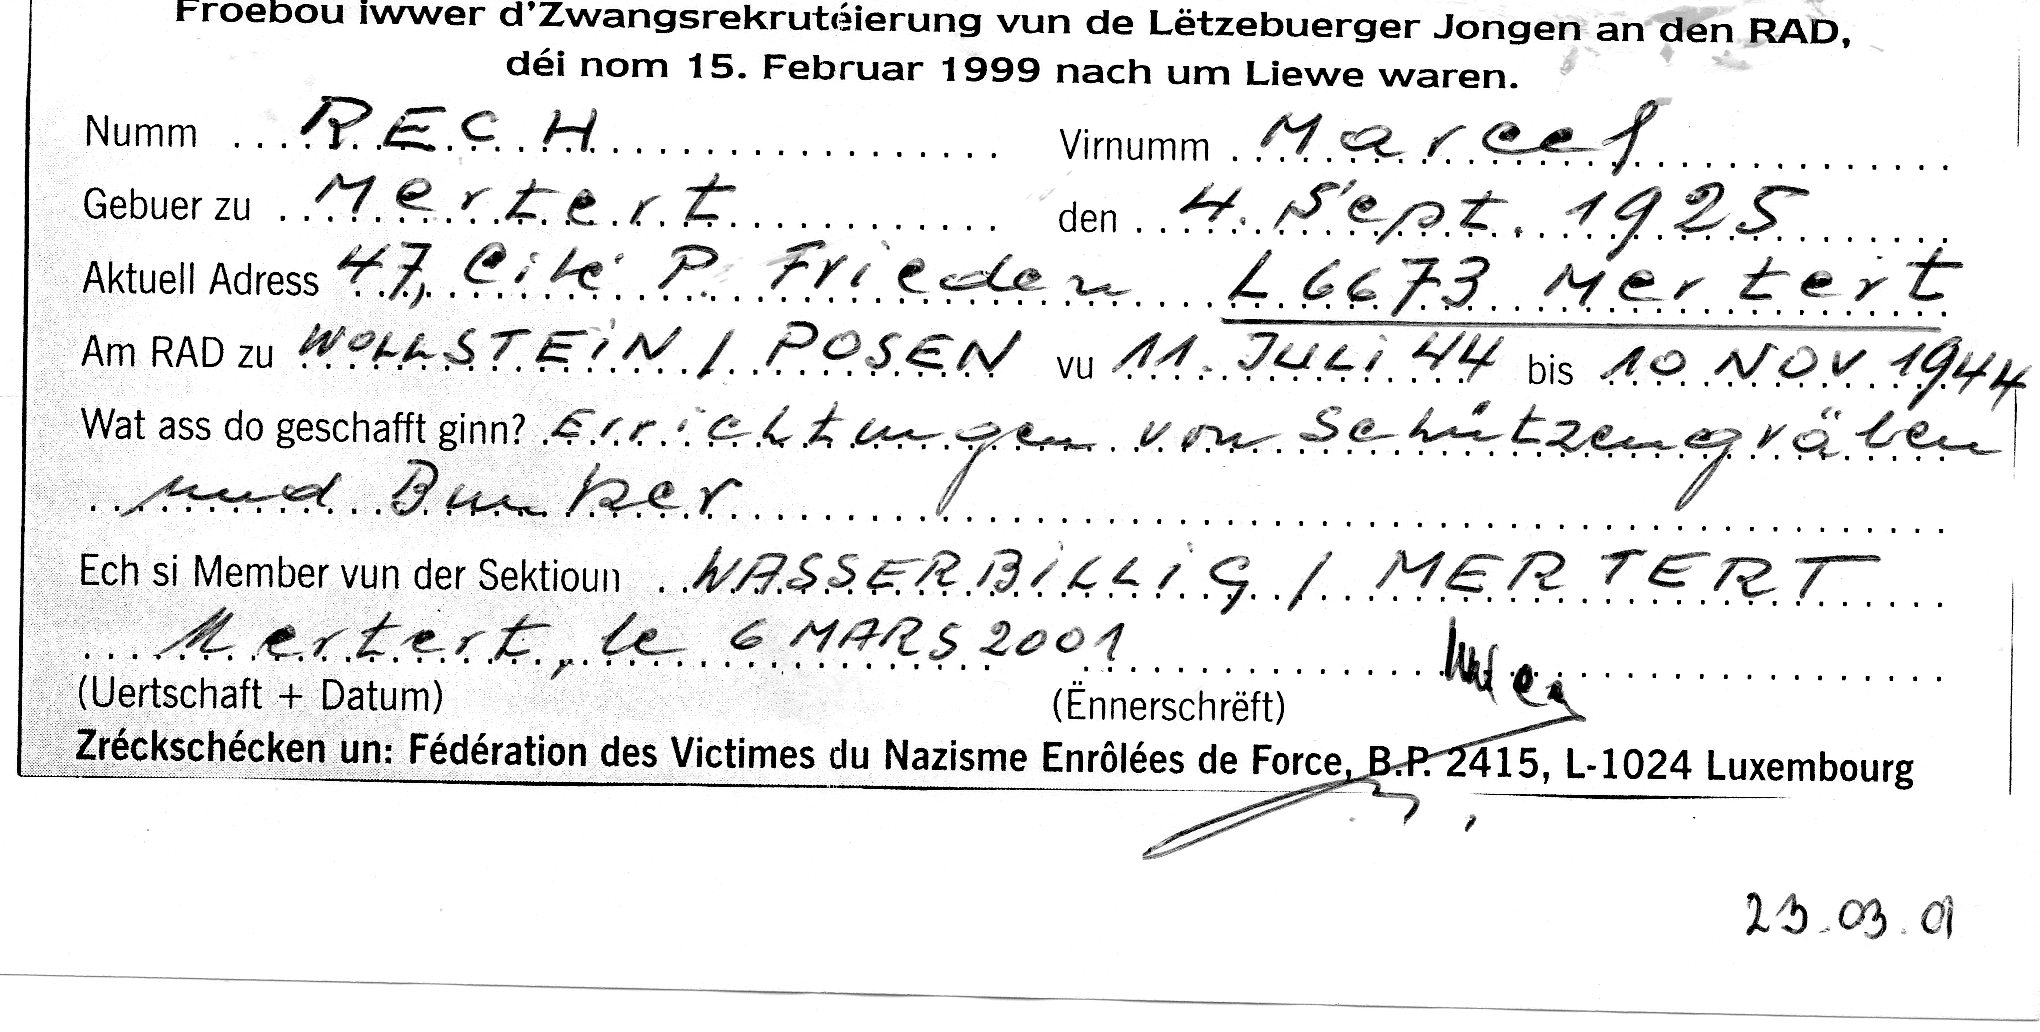 Froebou iwwer d'Zwangsrekrutéierung vun de Lëtzebuerger Jongen an den RAD,
déi nom 15. Februar 1999 nach um Liewe waren.
Numm RECH Virnumm Marcel
Gebuer zu Mertert den 4. Sept. 1925
Aktuell Adress 47, Cité P. Frieden L 6673 Mertert
Am RAD zu WOLLSTEIN / POSEN vu 11. JULI 44 bis 10 NOV 1944
Wat ass do geschafft ginn? Errichtungen von Schützengräben
und Bunker
Ech si Member vun der Sektioun WASSERBILLIG / MERTERT
Mertert, le 6 MARS 2001
(Uertschaft + Datum) (Ënnerschrëft)
Zréckschécken un: Fédération des Victimes du Nazisme Enrôlées de Force, B.P. 2415, L-1024 Luxembourg
23.03.01